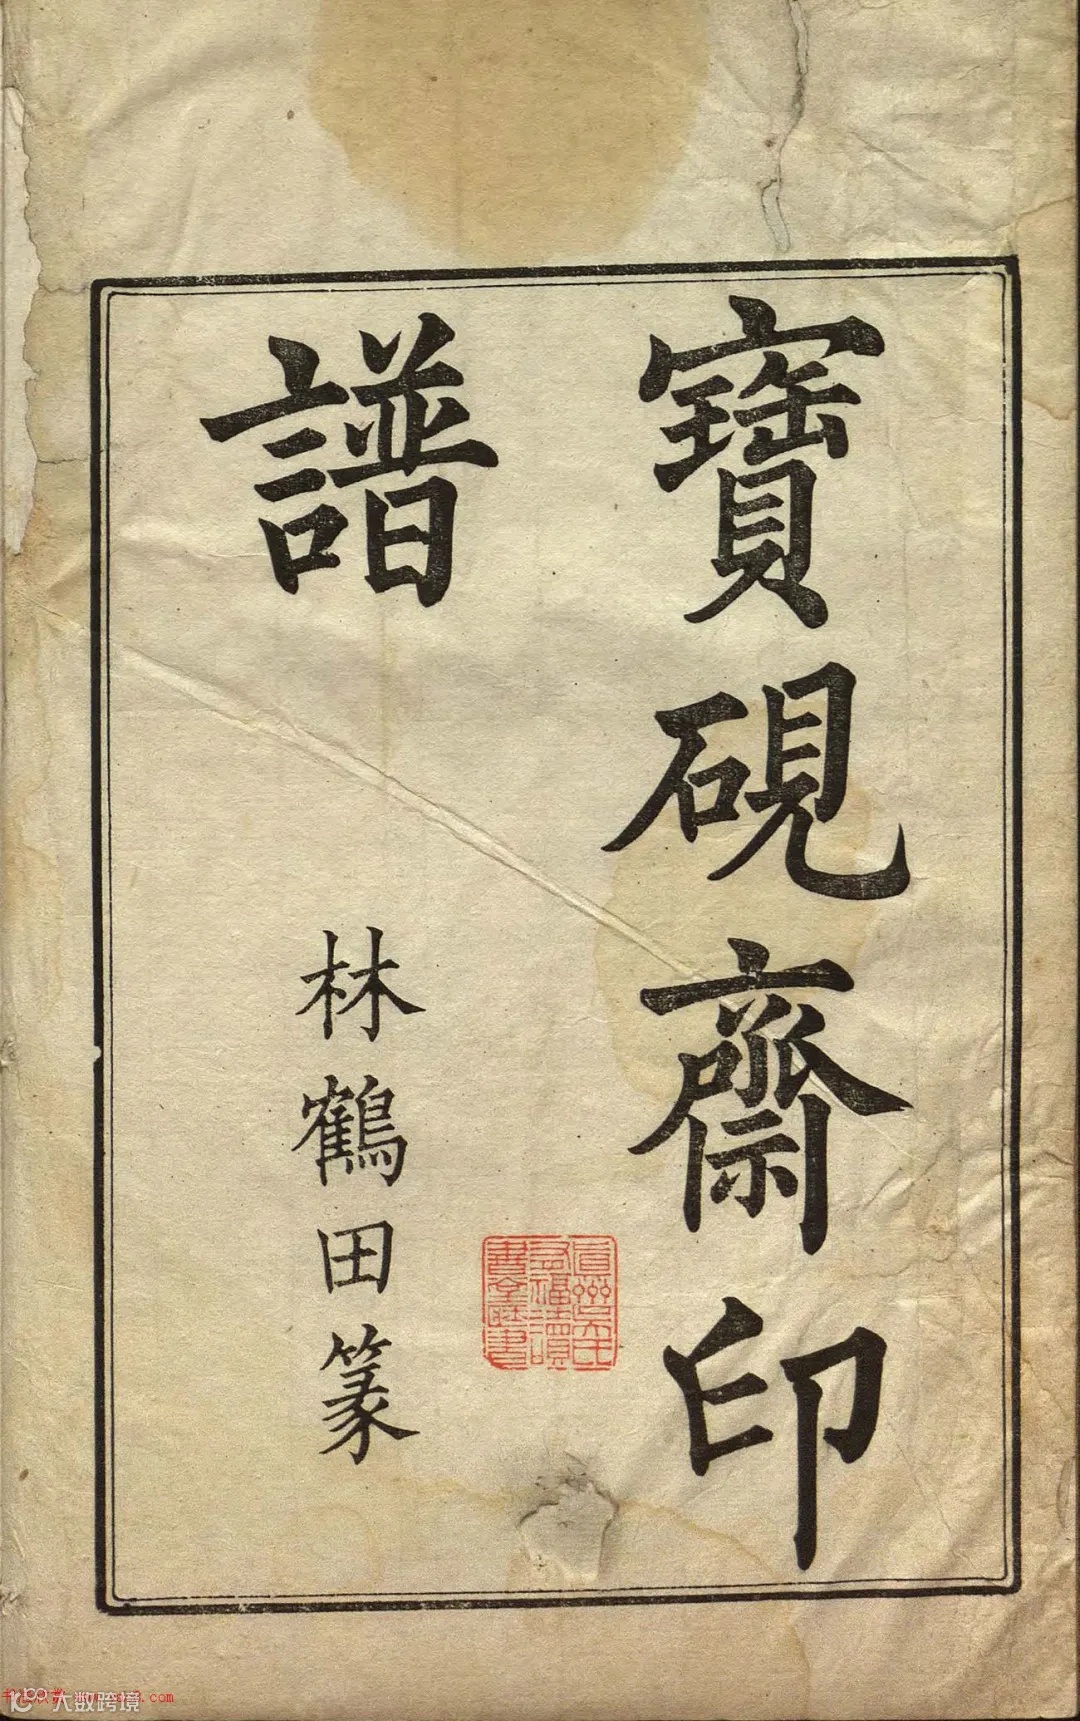 寶硯齋印
譜
林鶴田篆
大数跨境